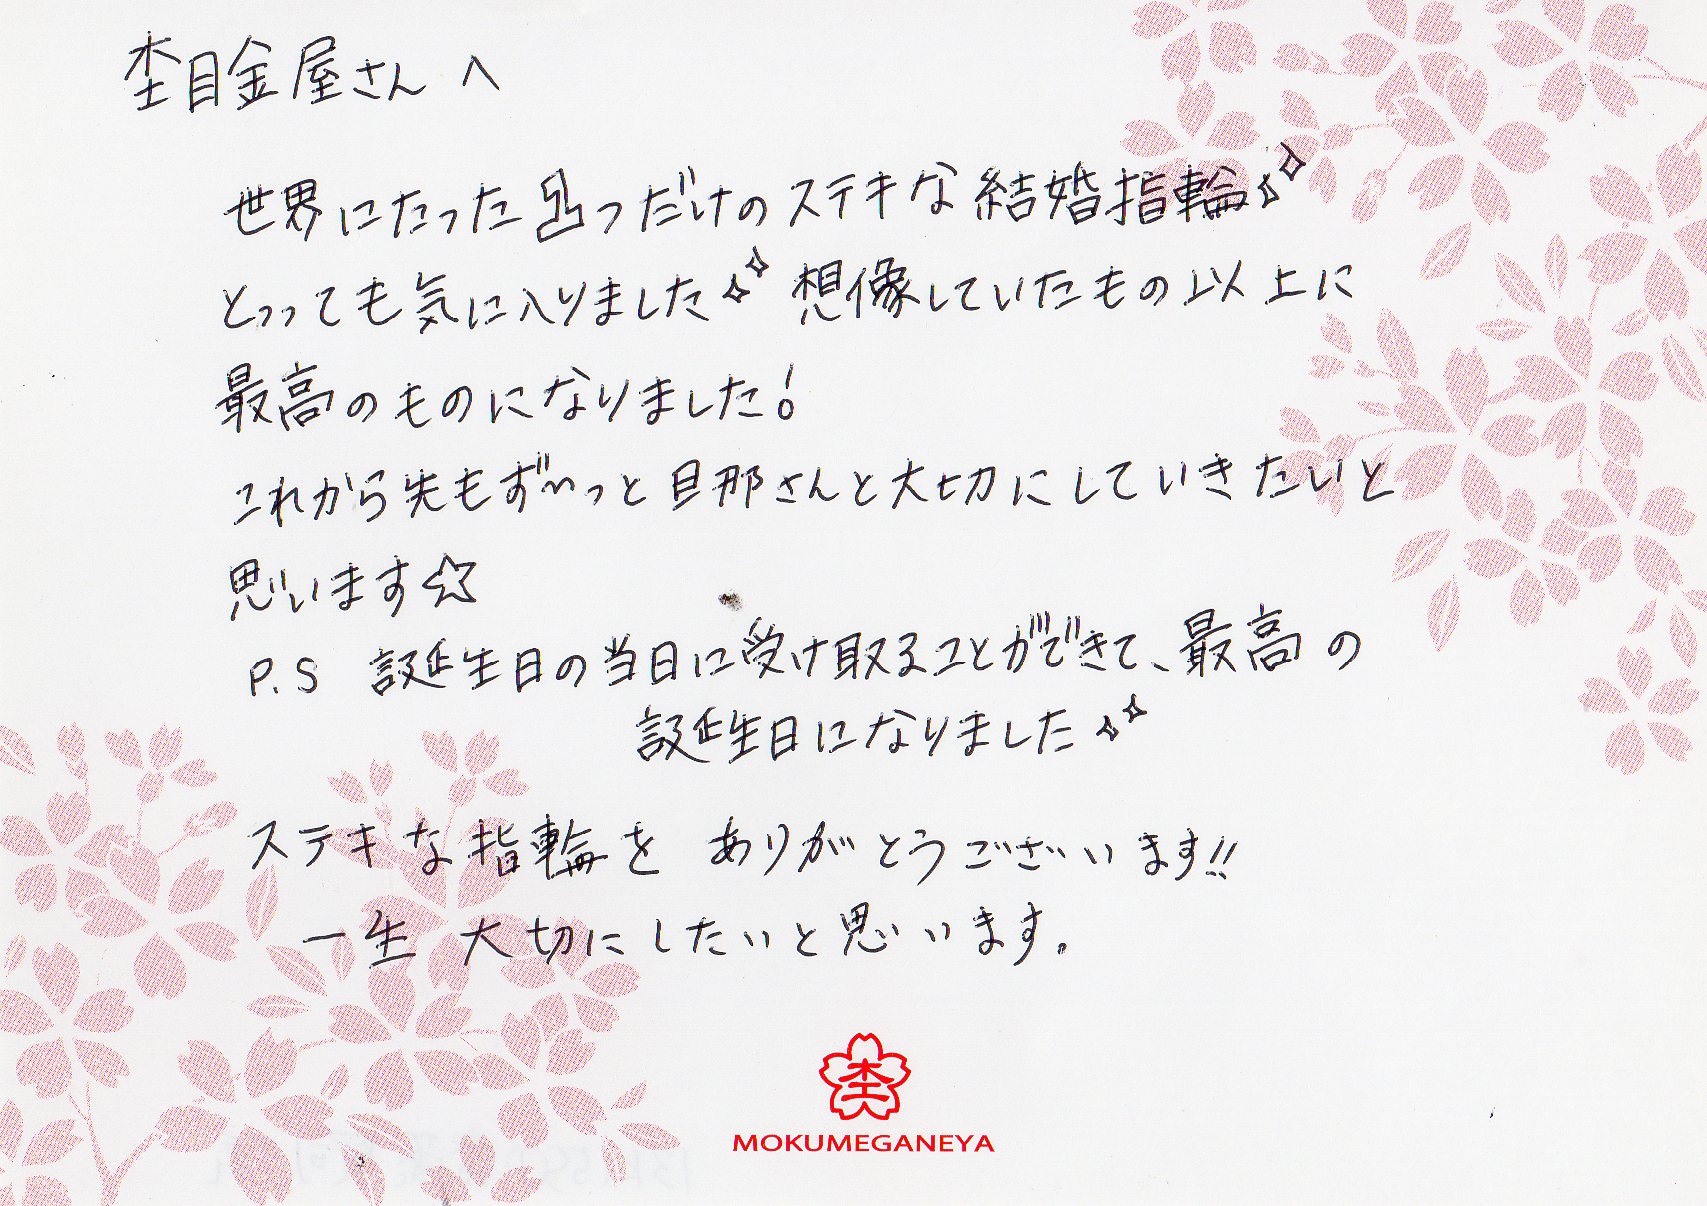 杢目金屋さんへ
世界にたった1つだけのステキな結婚指輪
とっっても気に入りました 想像していたもの以上に
最高のものになりました!
これから先もず〜っと旦那さんと大切にしていきたいと
思います☆
P.S 誕生日の当日に受け取ることができて、最高の
誕生日になりました
ステキな指輪を ありがとうございます!!
一生 大切にしたいと思います。
杢目
MOKUMEGANEYA